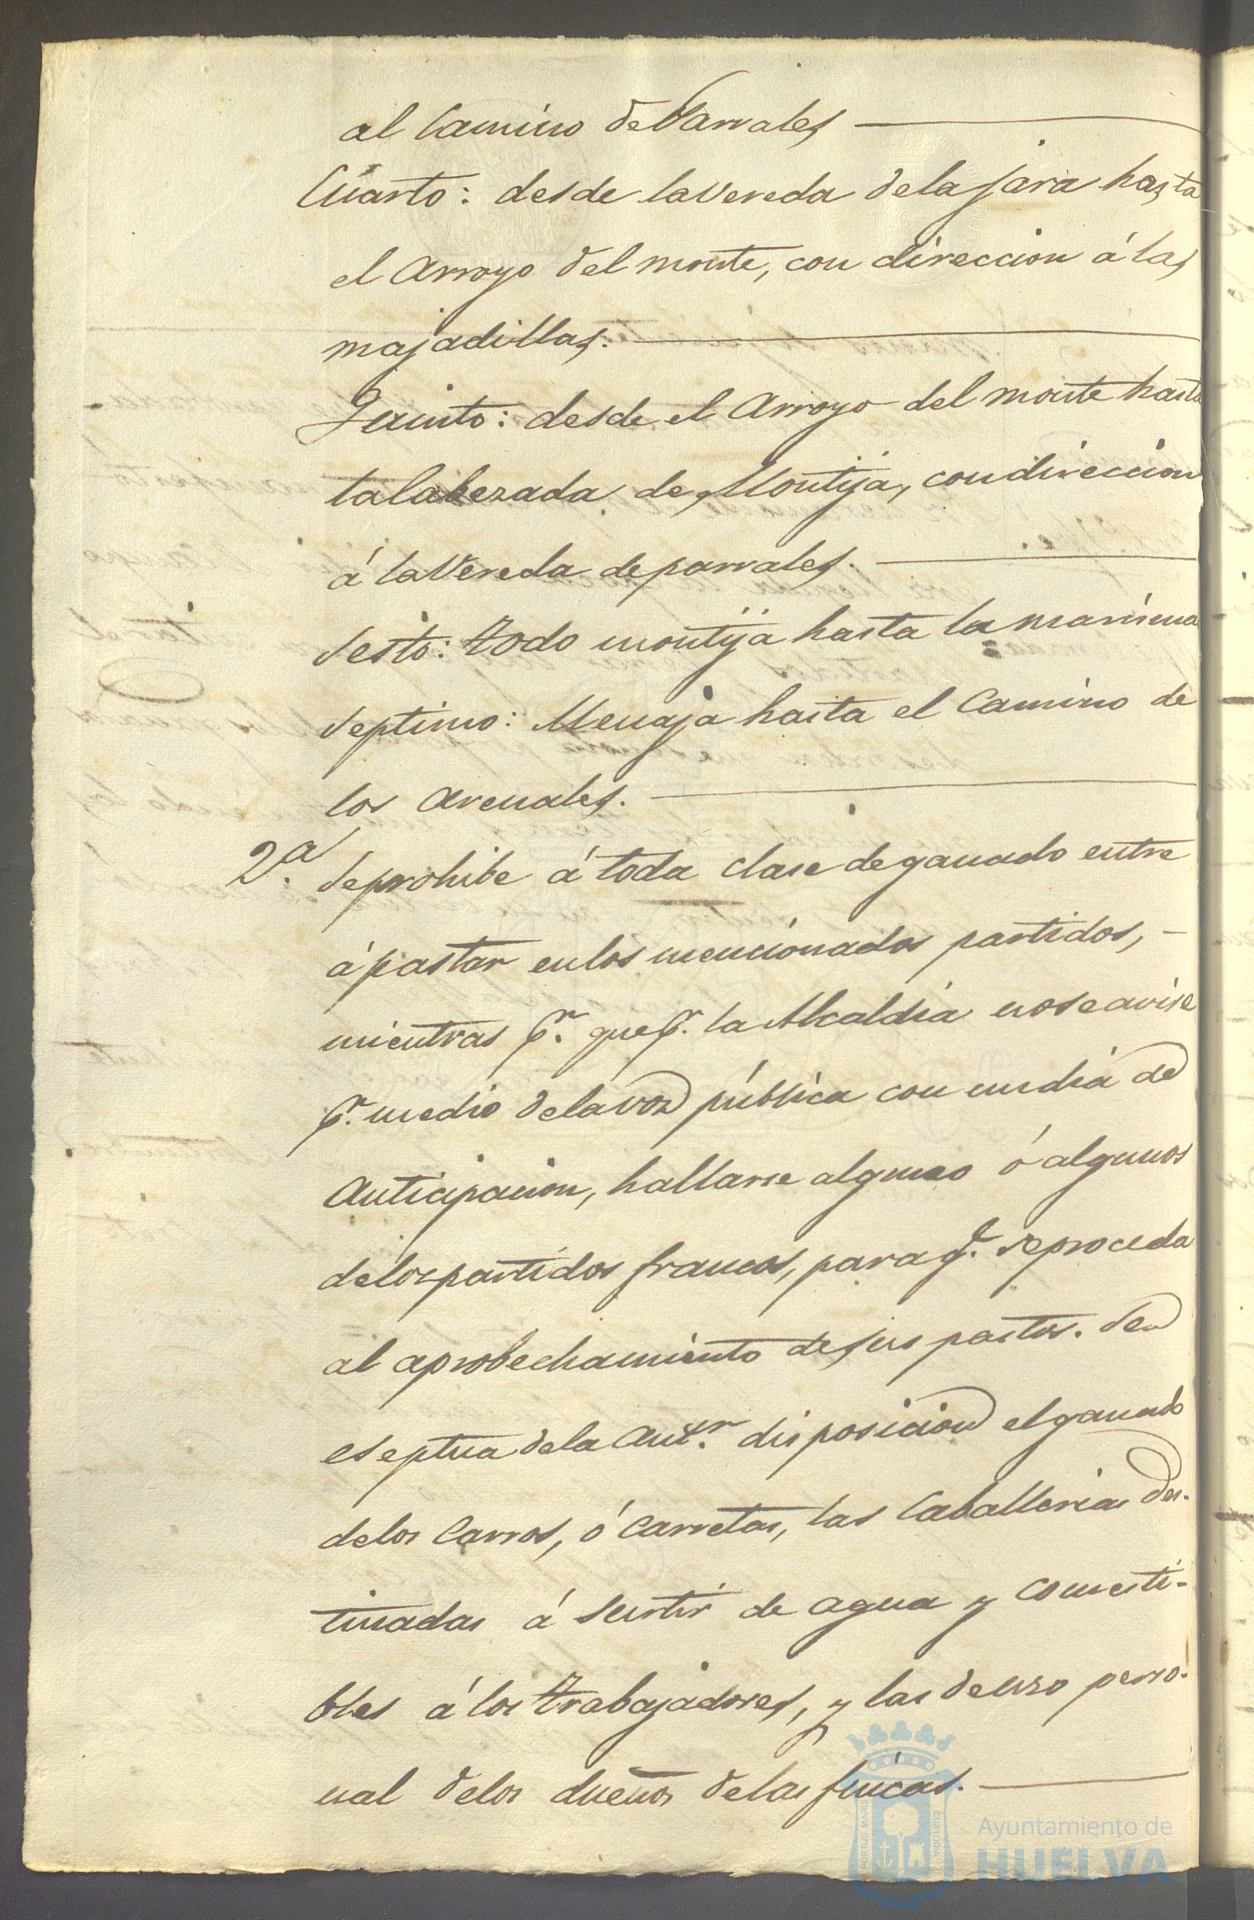 al Camino de Parrales
Cuarto: desde la Vereda de la jara hasta
el Arroyo del monte, con direccion á las
majadillas.
Quinto: desde el Arroyo del monte hasta
la Cabezada de Montija, con direccion
á la Vereda de parrales.
Sesto: todo montija hasta la marisma
Septimo: Menaja hasta el Camino de
los Arenales.
2.a Se prohibe á toda clase de ganado entre
á pastar en los mencionados partidos,
mientras pr. que pr. la Alcaldia no se avise
pr. medio de la voz pública con un dia de
Anticipacion, hallarse alguno ó algunos
de los partidos francos, para qe. se proceda
al aprobechamiento de sus pastos. Se
eseptua de la Antr. disposicion el ganado
de los Carros, ó Carretas, las Caballerias des-
tinadas á surtir de agua y comesti-
bles á los trabajadores, y las de uso perso-
nal de los dueños de las fincas.
Ayuntamiento de
HUELVA